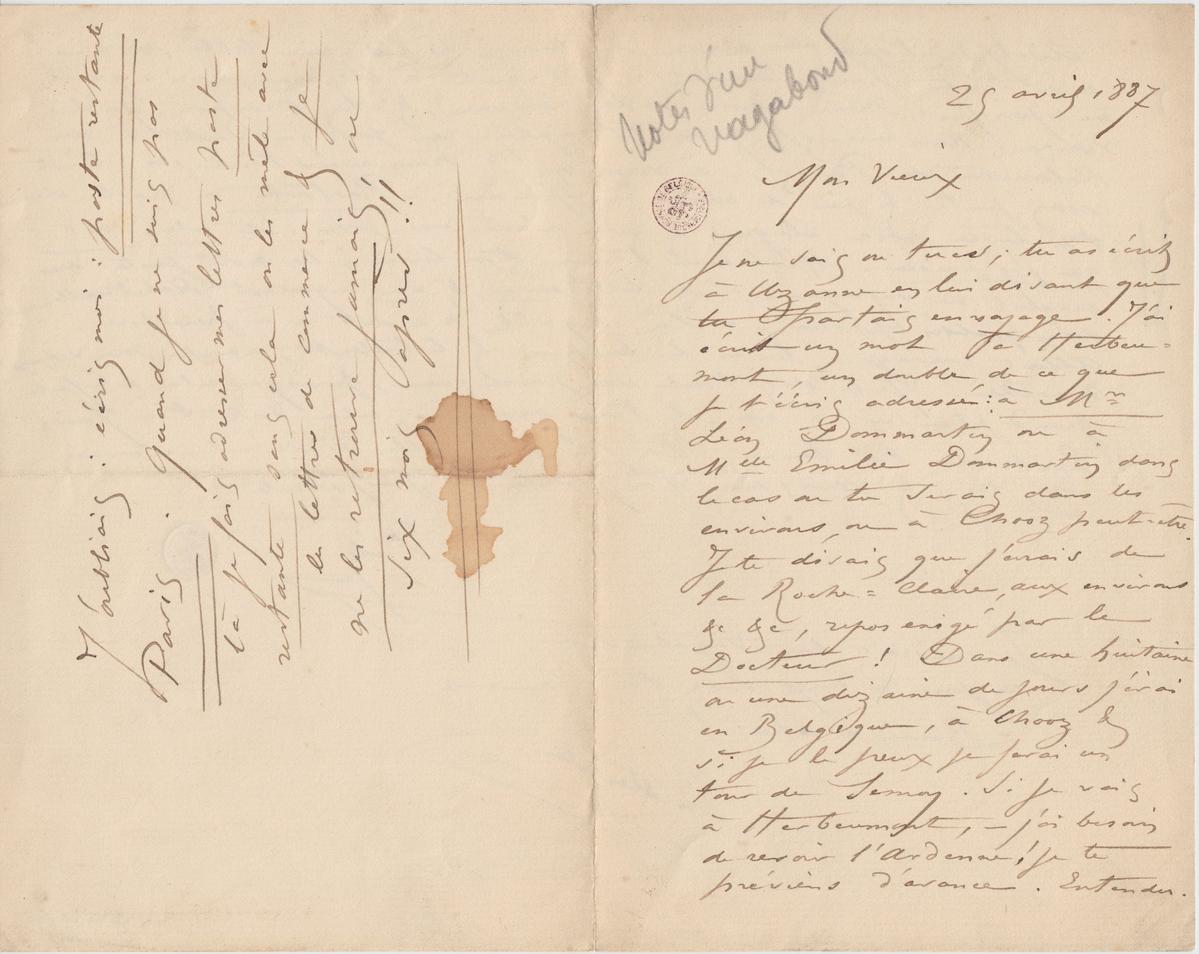 Notes d'un
vagabond
25 avril 1887
Mon Vieux
Je ne sais ou tu es ; tu as écrit
à Uzanne en lui disant que
tu partais en voyage. J'ai
écrit un mot à Herbeu=
mont, un double de ce que
je t'écris adressé : à Mr
Léon Dommartin ou à
Melle Emilie Dommartin dans
le cas ou tu serais dans les
environs, ou à Chooz peut-être.
Je te disais que j'irais de
la Roche = Claire, aux environs
&c &c, repos exigé par le
Docteur ! Dans une huitaine
ou une dizaine de jours j'irai
en Belgique, à Chooz &
si je le peux je ferai un
tour de Semoy. Si je vais
à Herbeumont, – j'ai besoin
de revoir l'Ardenne, je te
préviens d'avance. Entendu.
J'oubliais : écris moi : poste restante
Paris. Quand je ne suis pas
là je fais adresser mes lettres poste
restante sans cela on les mêle avec
les lettres de commerce & je
ne les retrouve jamais, ou
six mois après !!